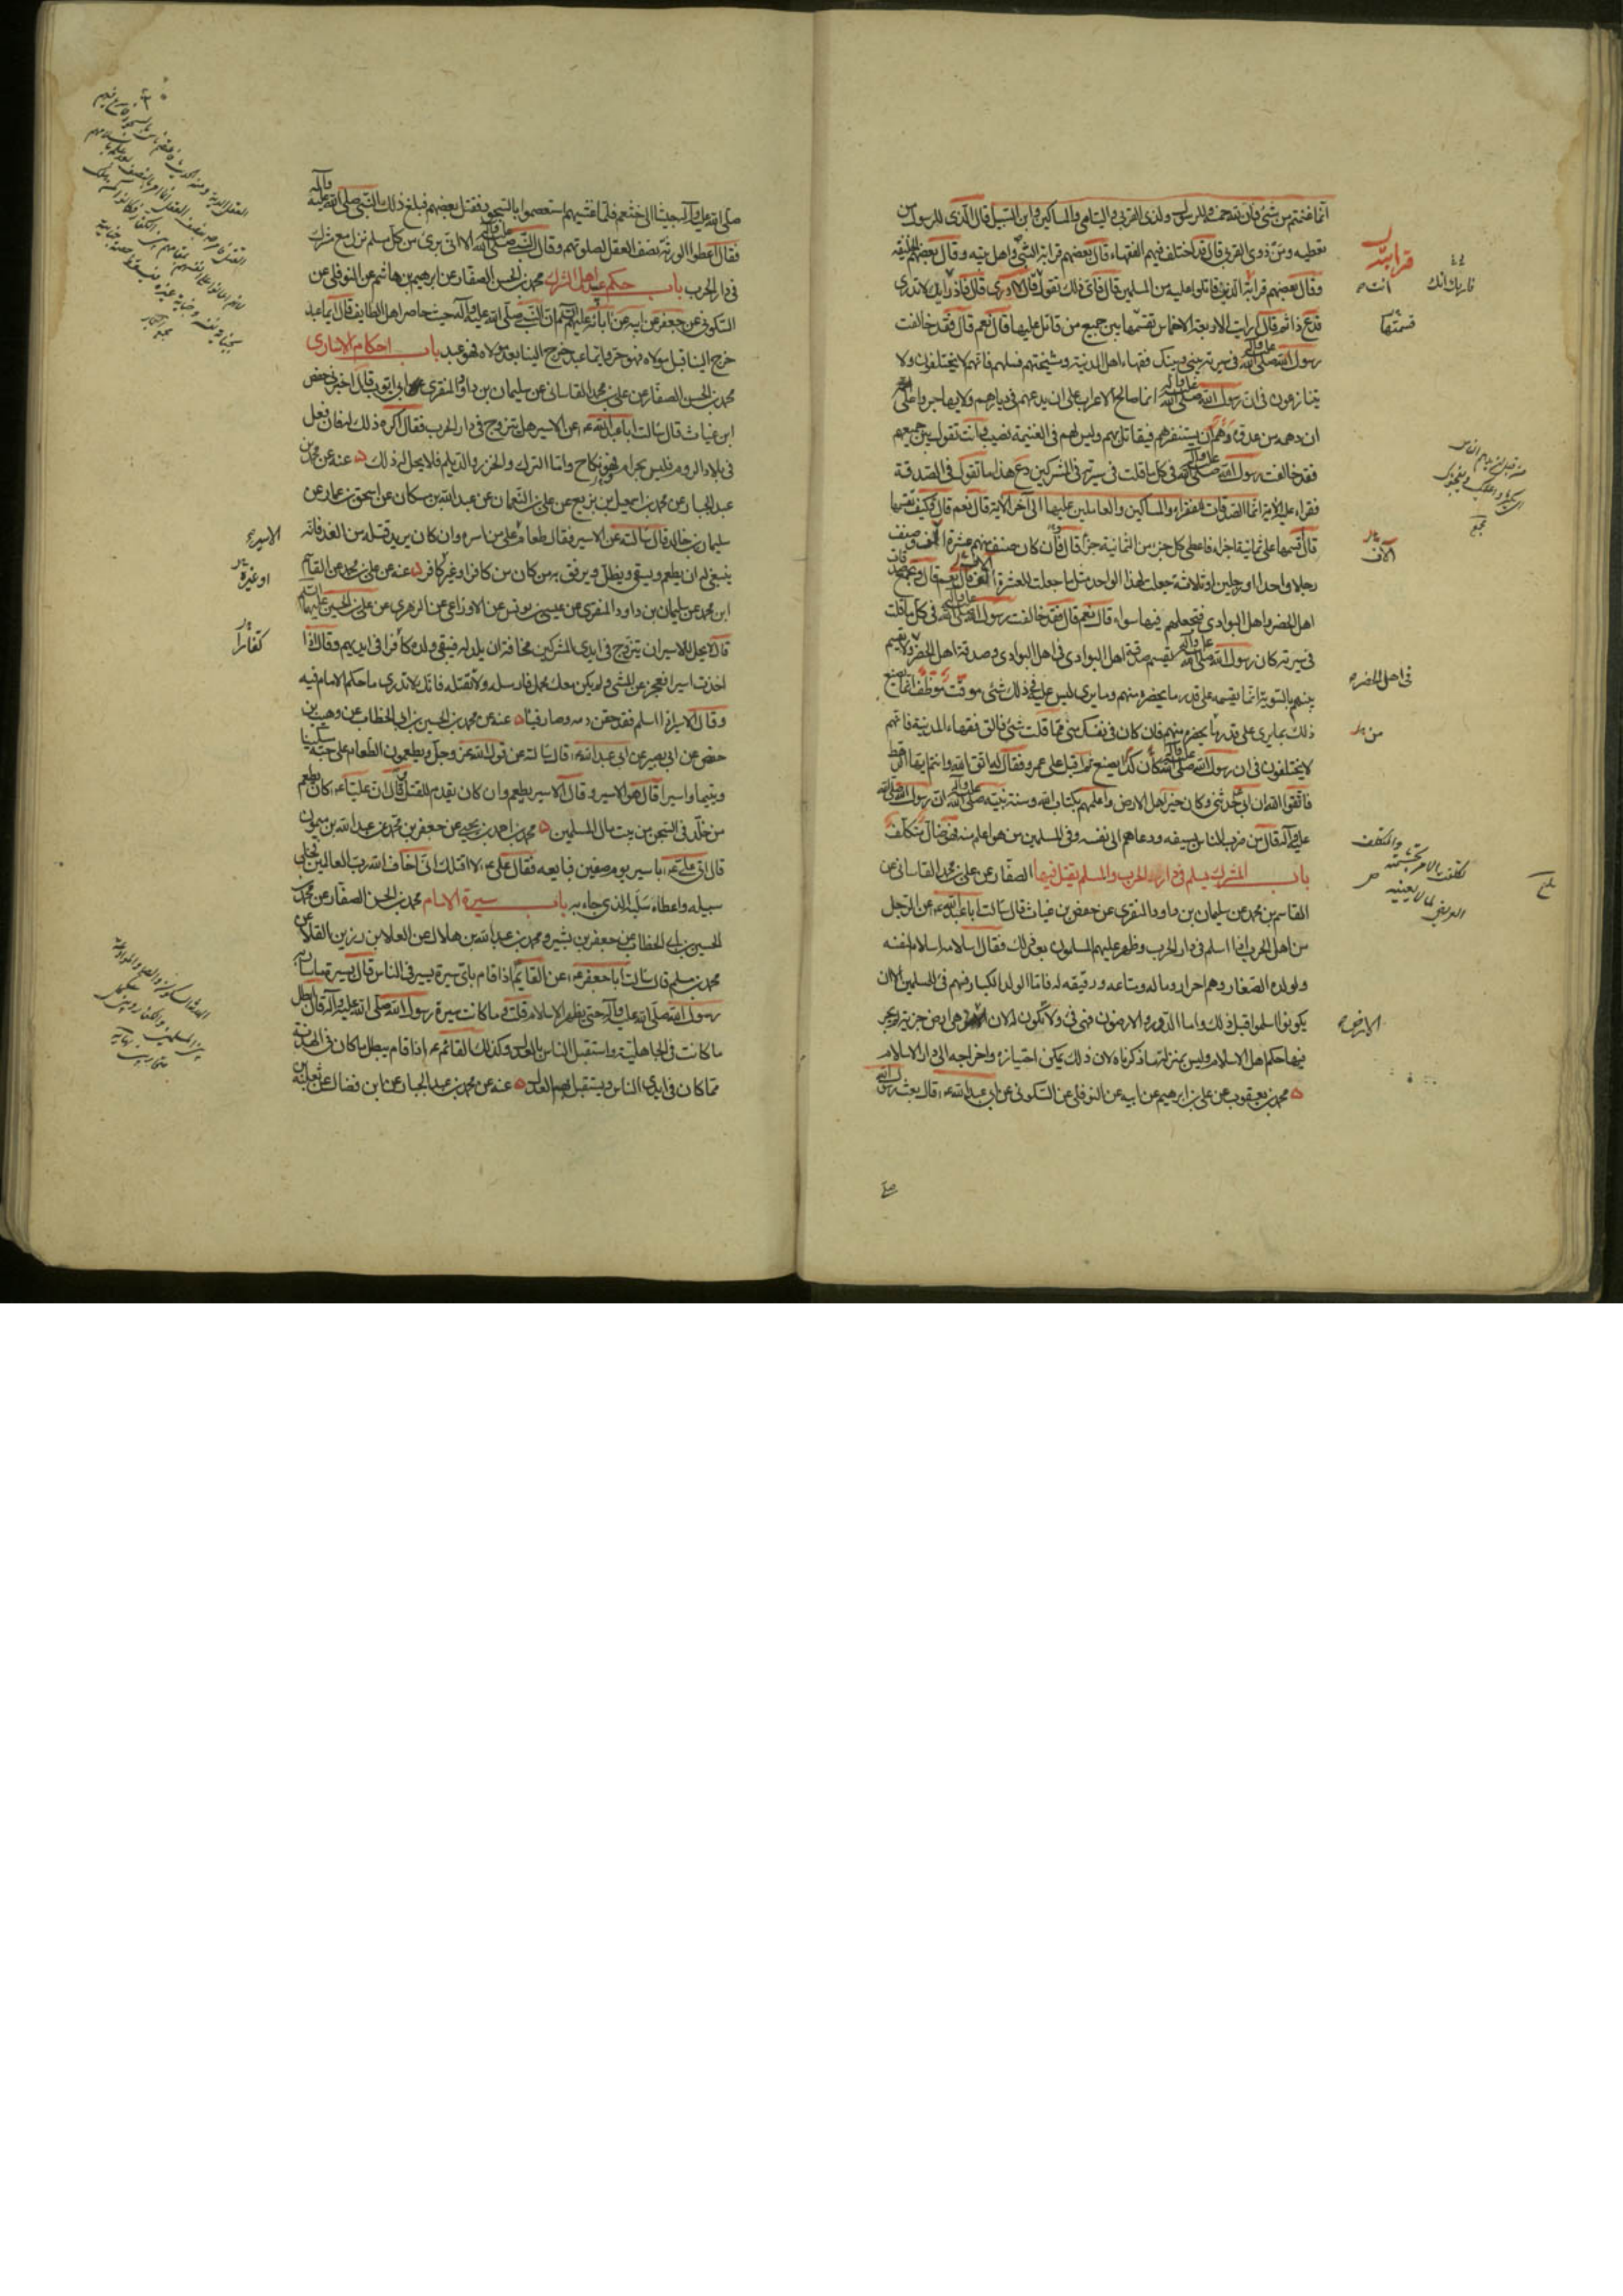 انما غنمتم من شئ فان لله خمسه وللرسول ولذى القربى واليتامى والمساكين وابن السبيل قال الذى للرسول من
تعطيه ومن ذوى القربى قال قد اختلف فيهم الفقهاء قال بعضهم قرابة النبى واهل بيته وقال بعضهم الخليفة
وقال بعضهم قرابة الذين قاتلوا عليه من المسلمين قال فاى ذلك تقول قال لا ادرى قال فاراك لا تدرى
فدع ذا ثم قال ارايت الاربعة الاخماس تقسمها بين جميع من قاتل عليها قال نعم قال فقد خالفت
رسول الله صلى الله عليه وآله فى سيرته بينى وبينك فقهاء اهل المدينة ومشيختهم فسلهم فانهم لا يختلفون ولا
يتنازعون فى ان رسول الله صلى الله عليه وآله انما صالح الاعراب على ان يدعهم فى ديارهم ولا يهاجروا على
ان دهمه من عدوه دهم ان يستنفرهم فيقاتل بهم وليس لهم فى الغنيمة نصيب وانت تقول بين جميعهم
فقد خالفت رسول الله صلى الله عليه وآله فى كل ما قلت فى سيرته فى المشركين دع هذا ما تقول فى الصدقة
فقراء عليه الاية انما الصدقات للفقراء والمساكين والعاملين عليها الى آخر الاية قال نعم قال فكيف تقسمها
قال اقسمها على ثمانية اجزاء فاعطى كل جزء من الثمانية جزءا قال فان كان صنف منهم عشرة الف وصنف
رجلا واحدا او رجلين او ثلاثة جعلت لهذا الواحد مثل ما جعلت للعشرة الف قال نعم قال وتجمع صدقات
اهل الحضر واهل البوادى فتجعلهم فيها سواء قال نعم قال فقد خالفت رسول الله صلى الله عليه وآله فى كل ما قلت
فى سيرته كان رسول الله صلى الله عليه وآله يقسم صدقة اهل البوادى فى اهل البوادى وصدقة اهل الحضر ولا يقسم
بينهم بالسوية انما يقسمه على قدر ما يحضره منهم وما يرى ليس عليه فى ذلك شئ موقت موظف انما يصنع
ذلك بما يرى على قدر ما يحضره منهم فان كان فى نفسك شئ مما قلت شئ فالق فقهاء المدينة فانهم
لا يختلفون فى ان رسول الله صلى الله عليه وآله كان كذا يصنع ثم اقبل على عمرو فقال له اتق الله وانتم ايها الرهط
فاتقوا الله ان ابى حدثنى وكان خير اهل الارض واعلمهم بكتاب الله وسنة نبيه صلى الله عليه وآله ان رسول الله صلى الله
عليه وآله قال من ضرب الناس بسيفه ودعاهم الى نفسه وفى المسلمين من هو اعلم منه فهو ضال متكلف
باب المشرك يسلم فى دار الحرب والمسلم يقتل فيها الصفار عن على بن محمد القاسانى عن
القاسم بن محمد عن سليمان بن داود المنقرى عن حفص بن غياث قال سالت ابا عبد الله ع عن الرجل
من اهل الحرب اذا اسلم فى دار الحرب وظهر عليهم المسلمون بعد ذلك فقال اسلامه اسلام لنفسه
ولولده الصغار وهم احرار وماله ومتاعه ورقيقه له فاما الولد الكبار فهم فئ للمسلمين الا ان
يكونوا اسلموا قبل ذلك واما الدور والارضون فهى فئ ولا تكون له لان الارض هى ارض جزية لم يجر
فيها حكم اهل الاسلام وليس بمنزلة ما ذكرناه لان ذلك يمكن احتيازه واخراجه الى دار الاسلام
محمد بن يعقوب عن على بن ابرهيم عن ابيه عن النوفلى عن السكونى عن ابى عبد الله ع قال بعث رسول الله
قرابته
فاريك انك
انت
قسمتها
آلاف
فى اهل الحضر
من
الارض
صلى الله عليه وآله جيشا الى خثعم فلما غشيهم استعصموا بالسجود فقتل بعضهم فبلغ ذلك النبى صلى الله عليه وآله
فقال اعطوا الورثة نصف العقل لصلوتهم وقال النبى صلى الله عليه وآله الا انى برئ من كل مسلم نزل مع مشرك
فى دار الحرب باب حكم عبيد اهل الشرك محمد بن الحسن الصفار عن ابرهيم بن هاشم عن النوفلى عن
السكونى عن جعفر عن ابيه عن آبائه عليهم السلم ان النبى صلى الله عليه وآله حيث حاصر اهل الطايف قال ايما عبد
خرج الينا قبل مولاه فهو حر وايما عبد خرج الينا بعد مولاه فهو عبد باب احكام الاسارى
محمد بن الحسن الصفار عن على بن محمد القاسانى عن سليمان بن داود المنقرى ابى ايوب قال اخبرنى حفص
ابن غياث قال سالت ابا عبد الله ع عن الاسير هل يتزوج فى دار الحرب فقال اكره ذلك له فان فعل
فى بلاد الروم فليس بحرام وهو نكاح واما الترك والخزر والديلم فلا يحل له ذلك عنه عن محمد بن
عبد الجبار عن محمد بن اسمعيل بن بزيع عن على بن النعمان عن عبد الله بن مسكان عن اسحق بن عمار عن
سليمان بن خالد قال سالته عن الاسير فقال طعام على من اسره وان كان يريد قتله من الغد فانه
ينبغى له ان يطعم ويسقى ويظل ويرفق به من كان من كافر او غير كافر عنه عن على بن محمد عن القاسم
ابن محمد عن سليمان بن داود المنقرى عن عيسى بن يونس عن الاوزاعى عن الزهرى عن على بن الحسين عليهما السلم
قال لا يحل للاسير ان يتزوج فى ايدى المشركين مخافة ان يلد له فيبقى ولده كافرا فى ايديهم وقال اذا
اخذت اسيرا فعجز عن المشى ولم يكن معك محمل فارسله ولا تقتله فانك لا تدرى ما حكم الامام فيه
وقال الاسير اذا اسلم فقد حقن دمه وصار فيئا عنه عن محمد بن الحسين بن ابى الخطاب عن وهيب بن
حفص عن ابى بصير عن ابى عبد الله ع قال سالته عن قول الله عز وجل ويطعمون الطعام على حبه مسكينا
ويتيما واسيرا قال هو الاسير وقال الاسير يطعم وان كان يقدم للقتل وقال ان عليا ع كان يطعم
من خلد فى السجن من بيت مال المسلمين محمد بن احمد بن يحيى عن جعفر بن محمد عن عبد الله بن ميمون
قال اتى على ع باسير يوم صفين فبايعه فقال على ع لا اقتلك انى اخاف الله رب العالمين فخلى
سبيله واعطاه سلبه الذى جاء به باب سيرة الامام محمد بن الحسن الصفار عن محمد بن
الحسين بن ابى الخطاب عن جعفر بن بشير ومحمد بن عبد الله بن هلال عن العلا بن رزين القلا عن
محمد بن مسلم قال سالت ابا جعفر ع عن القايم اذا قام باى سيرة يسير فى الناس قال بسيرة ما سار به
رسول الله صلى الله عليه وآله حتى يظهر الاسلام قلت وما كانت سيرة رسول الله صلى الله عليه وآله قال ابطل
ما كانت فى الجاهلية واستقبل الناس بالعدل وكذلك القائم ع اذا قام يبطل ما كان فى الهدنة
مما كان فى ايدى الناس ويستقبل بهم العدل عنه عن محمد بن عبد الجبار عن ابن فضال عن ثعلبة بن
الاسير
او غيره
كفارا